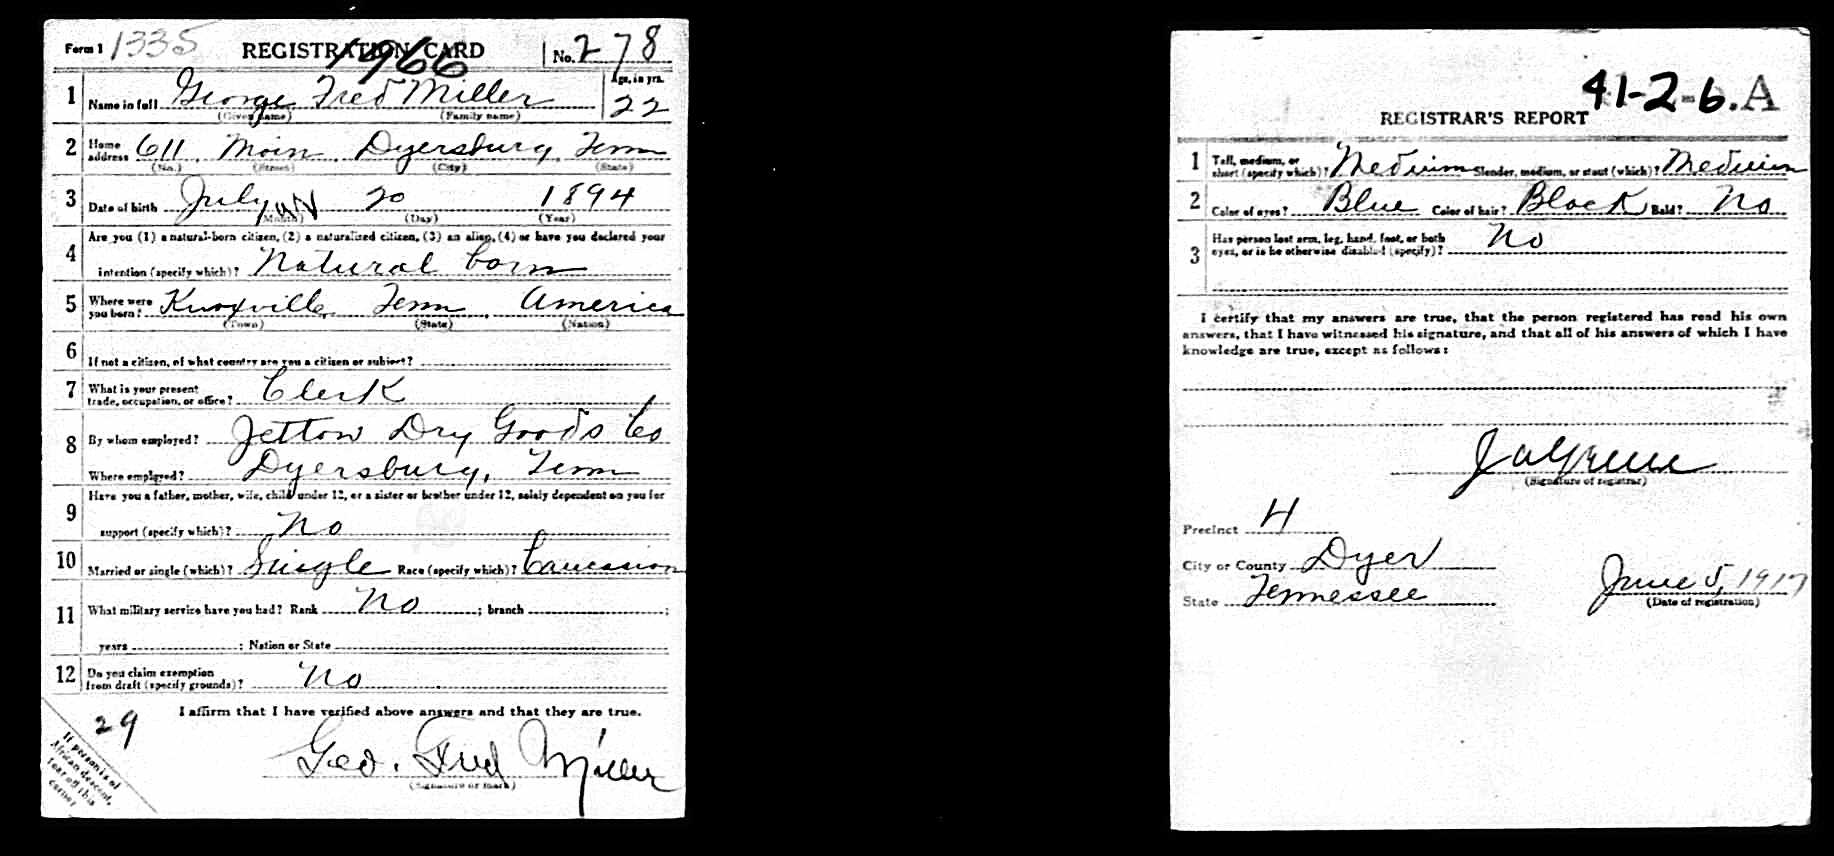 Form 1 1335 REGISTRATION CARD No. 278
1966
1 Name in full George Fred Miller Age, in yrs. 22
(Given name) (Family name)
2 Home address 611 Main Dyersburg Tenn
(No.) (Street) (City) (State)
3 Date of birth July 20 1894
(Month) (Day) (Year)
4 Are you (1) a natural-born citizen, (2) a naturalized citizen, (3) an alien, (4) or have you declared your
intention (specify which)? Natural born
5 Where were you born? Knoxville, Tenn, America
(Town) (State) (Nation)
6 If not a citizen, of what country are you a citizen or subject?
7 What is your present trade, occupation, or office? Clerk
8 By whom employed? Jetton Dry Goods Co
Where employed? Dyersburg, Tenn
9 Have you a father, mother, wife, child under 12, or a sister or brother under 12, solely dependent on you for
support (specify which)? No
10 Married or single (which)? Single Race (specify which)? Caucasian
11 What military service have you had? Rank No ; branch ;
years ; Nation or State
12 Do you claim exemption from draft (specify grounds)? No
I affirm that I have verified above answers and that they are true.
29
Geo. Fred Miller
(Signature or mark)
If person is of
African descent,
tear off this
corner
41-2-6.A
REGISTRAR'S REPORT
1 Tall, medium, or short (specify which)? Medium Slender, medium, or stout (which)? Medium
2 Color of eyes? Blue Color of hair? Black Bald? No
3 Has person lost arm, leg, hand, foot, or both eyes, or is he otherwise disabled (specify)? No
I certify that my answers are true, that the person registered has read his own
answers, that I have witnessed his signature, and that all of his answers of which I have
knowledge are true, except as follows:
(Signature of registrar)
Precinct 4
City or County Dyer
State Tennessee June 5, 1917
(Date of registration)